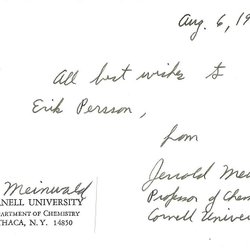 Aug. 6, 19
All best wishes to
Erik Persson,
from
Jerrold Mei
Professor of Chem
Cornell Univer
Meinwald
RNELL UNIVERSITY
EPARTMENT OF CHEMISTRY
THACA, N. Y. 14850